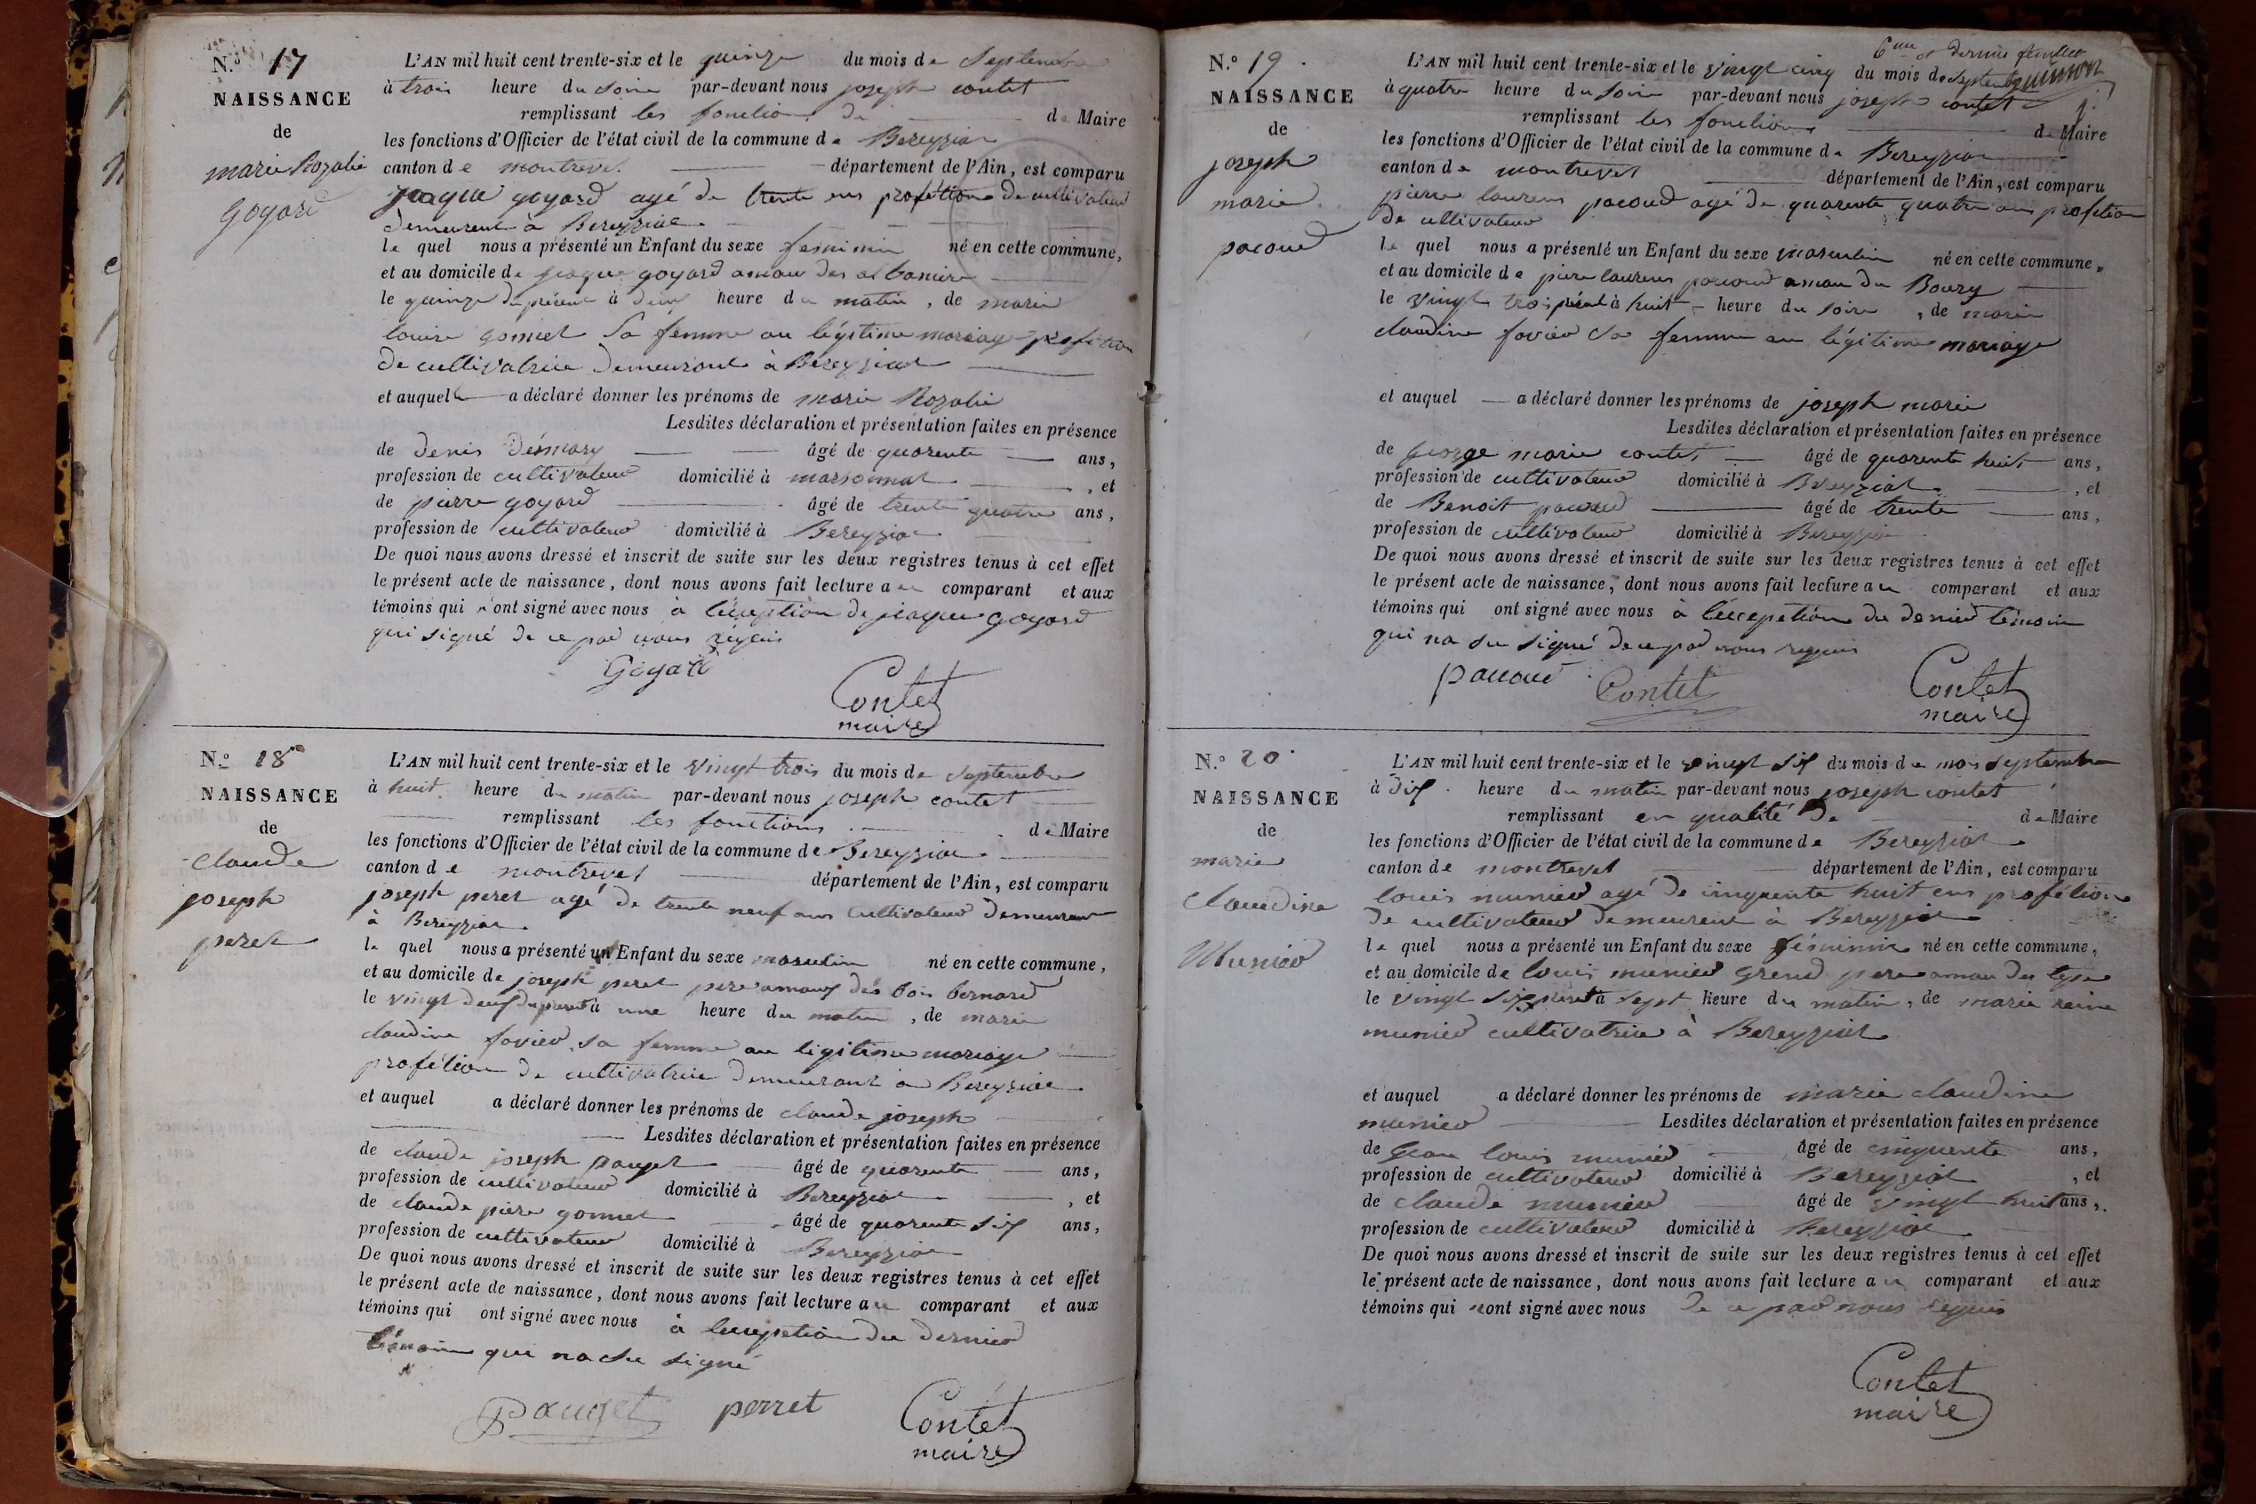 N.o 17
NAISSANCE
de
marie Rozalie
goyard
L'AN mil huit cent trente-six et le quinze du mois de septembre
à trois heure du soire par-devant nous joseph contet
remplissant les fonction de de Maire
les fonctions d'Officier de l'état civil de la commune de Bereyziat
canton de montrevel département de l'Ain, est comparu
jaque goyard agé de trente ans profétion de cultivateur
demeurent à Bereyziat
le quel nous a présenté un Enfant du sexe feminin né en cette commune,
et au domicile de jaque goyard amau des
le quinze du présent à deux heure du matin, de marie
louise gonnet sa femme au légitime mariage profétion
de cultivatrice demeurant à Bereyziat
et auquel a déclaré donner les prénoms de marie Rozalie
Lesdites déclaration et présentation faites en présence
de denis âgé de quarente ans,
profession de cultivateur domicilié à marsonnat, et
de pierre goyard âgé de trente quatre ans,
profession de cultivateur domicilié à Bereyziat
De quoi nous avons dressé et inscrit de suite sur les deux registres tenus à cet effet
le présent acte de naissance, dont nous avons fait lecture au comparant et aux
témoins qui n'ont signé avec nous à léceptión de jaque goyard
qui signé de ce par nous requis
Goyard
Contet
maire
N.o 18
NAISSANCE
de
claude
joseph
peret
L'AN mil huit cent trente-six et le vingt trois du mois de septembre
à huit heure du matin par-devant nous joseph contet
remplissant les fonctions de Maire
les fonctions d'Officier de l'état civil de la commune de Bereyziat
canton de montrevel département de l'Ain, est comparu
joseph peret agé de trente neuf ans cultivateur demeurant
à Bereyziat
le quel nous a présenté un Enfant du sexe masculin né en cette commune,
et au domicile de joseph peret pere amaux des bois bernard
le vingt deux du présent à une heure du matin, de marie
claudine favier sa femme au légitime mariage
profétion de cultivatrice demeurant à Bereyziat
et auquel a déclaré donner les prénoms de claude joseph
Lesdites déclaration et présentation faites en présence
de claude joseph pauget âgé de quarente ans,
profession de cultivateur domicilié à Bereyziat, et
de claude pière gonnet âgé de quarente six ans,
profession de cultivateur domicilié à Bereyziat
De quoi nous avons dressé et inscrit de suite sur les deux registres tenus à cet effet
le présent acte de naissance, dont nous avons fait lecture au comparant et aux
témoins qui ont signé avec nous à lecepetion du dernier
témoin qui na su signé
Pauget perret Contet
maire
6me et dernier feuillet
N.o 19
NAISSANCE
de
joseph
marie
pacoud
L'AN mil huit cent trente-six et le vingt cinq du mois de septembre
à quatre heure du soire par-devant nous joseph contet
remplissant les fonctions de Maire
les fonctions d'Officier de l'état civil de la commune de Bereyziat
canton de montrevel département de l'Ain, est comparu
pierre laurens pacoud agé de quarente quatre ans profetion
de cultivateur
le quel nous a présenté un Enfant du sexe masculin né en cette commune,
et au domicile de piere laurens pacoud amau du Bourg
le vingt trois présent à huit heure du soire, de marie
claudine favier sa femme au légitime mariage
et auquel a déclaré donner les prénoms de joseph marie
Lesdites déclaration et présentation faites en présence
de george marie contet âgé de quarente huit ans,
profession de cultivateur domicilié à Bereyziat, et
de Benoit pacoud âgé de trente ans,
profession de cultivateur domicilié à Bereyziat
De quoi nous avons dressé et inscrit de suite sur les deux registres tenus à cet effet
le présent acte de naissance, dont nous avons fait lecture au comparant et aux
témoins qui ont signé avec nous à lécepetion du denier témoin
qui na su signé de ce par nous requis
pacoud Contet Contet
maire
N.o 20
NAISSANCE
de
marie
claudine
Munier
L'AN mil huit cent trente-six et le vingt six du mois de mois septembre
à dix heure du matin par-devant nous joseph contet
remplissant en qualité de de Maire
les fonctions d'Officier de l'état civil de la commune de Bereyziat
canton de montrevel département de l'Ain, est comparu
louis munier agé de cinquente huit ans profétion
de cultivateur demeurent à Bereyziat
le quel nous a présenté un Enfant du sexe féminin né en cette commune,
et au domicile de louis munier grend pere amau du
le vingt six présent à sept heure du matin, de marie reine
munier cultivatrice à Bereyziat
et auquel a déclaré donner les prénoms de marie claudine
munier Lesdites déclaration et présentation faites en présence
de Jean louis munier âgé de cinquente ans,
profession de cultivateur domicilié à Bereyziat, et
de claude munier âgé de vingt huit ans,
profession de cultivateur domicilié à Bereyziat
De quoi nous avons dressé et inscrit de suite sur les deux registres tenus à cet effet
le présent acte de naissance, dont nous avons fait lecture au comparant et aux
témoins qui nont signé avec nous de ce par nous requis
Contet
maire